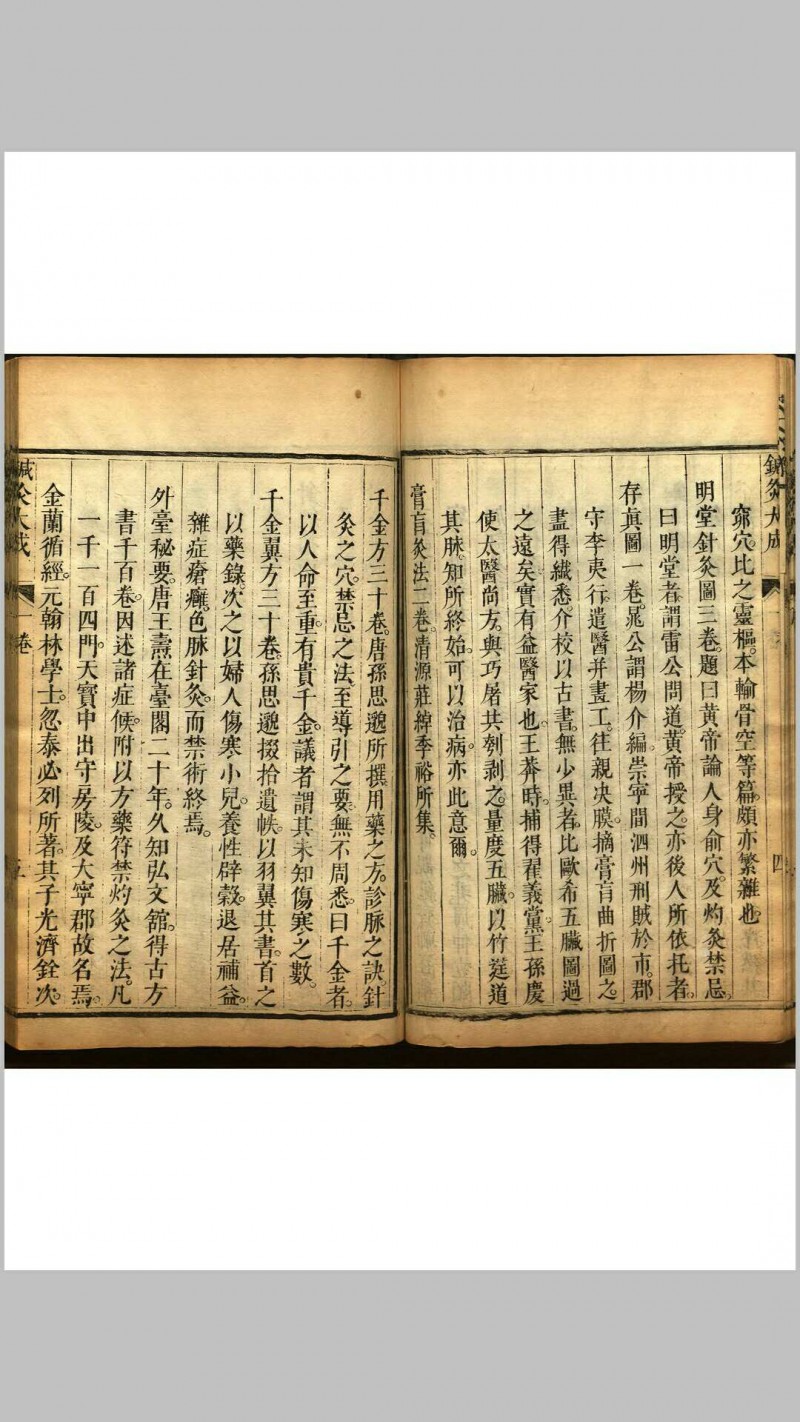 鍼灸大成 一卷 四
窌穴比之靈樞本輸骨空等篇頗亦繁雜也。
明堂針灸圖三卷。題曰黃帝論人身俞穴。及灼灸禁忌。
曰明堂者。謂雷公問道。黃帝授之。亦後人所依托者。
存真圖一卷。晁公謂楊介編。崇寧間泗州刑賊於市。郡
守李夷行。遣醫并畫工。往親决膜。摘膏肓。曲折圖之。
盡得纖悉。介校以古書。無少異者。比歐希五臟圖過
之遠矣。實有益醫家也。王莽時。捕得翟義黨王孫慶
使太醫尚方。與巧屠共刳剥之。量度五臟。以竹筳道
其脉。知所終始。可以治病。亦此意爾。
膏肓灸法二卷。清源莊綽季裕所集。
千金方三十卷。唐孫思邈所撰。用藥之方。診脉之訣。針
灸之穴。禁忌之法。至導引之要。無不周悉。曰千金者。
以人命至重。有貴千金。議者謂其未知傷寒之數。
千金翼方三十卷。孫思邈掇拾遺帙。以羽翼其書。首之
以藥錄。次之以婦人傷寒小兒。養性辟穀。退居補益
雜症瘡癰。色脉針灸。而禁術終焉。
外臺秘要。唐王燾在臺閣二十年。久知弘文舘。得古方
書千百卷。因述諸症候。附以方藥符禁灼灸之法。凡
一千一百四門。天寶中出守房陵。及大寧郡故名焉。
金蘭循經。元翰林學士。忽泰必列所著。其子光濟銓次。
鍼灸大成 一卷 五